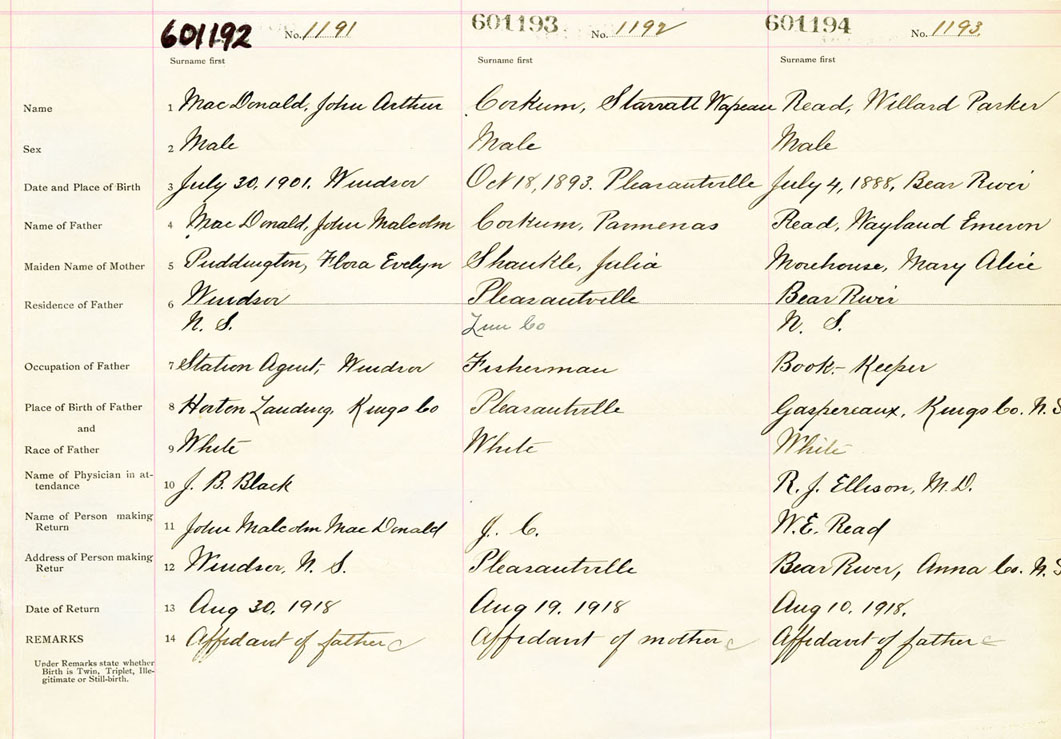 601192 No. 1191 601193 No. 1192 601194 No. 1193
Surname first Surname first Surname first
Name 1 MacDonald, John Arthur Corkum, Starratt Read, Willard Parker
Sex 2 Male Male Male
Date and Place of Birth 3 July 30, 1901. Windsor Oct 18, 1893. Pleasantville July 4, 1888, Bear River
Name of Father 4 MacDonald, John Malcolm Corkum, Parmenas Read, Wayland Emerson
Maiden Name of Mother 5 Puddington, Flora Evelyn Shankle, Julia Morehouse, Mary Alice
Residence of Father 6 Windsor Pleasantville Bear River
N. S. Lun Co N. S.
Occupation of Father 7 Station Agent, Windsor Fisherman Book-Keeper
Place of Birth of Father 8 Horton Landing, Kings Co Pleasantville Gaspereaux, Kings Co. N. S
and
Race of Father 9 White White White
Name of Physician in at-
tendance 10 J. B. Black R. J. Ellison, M.D.
Name of Person making
Return 11 John Malcolm MacDonald J. C. W. E. Read
Address of Person making
Retur 12 Windsor, N. S. Pleasantville Bear River, Anna Co. N. S
Date of Return 13 Aug 30, 1918 Aug 19, 1918 Aug 10, 1918.
REMARKS 14 Affidavit of father Affidavit of mother Affidavit of father
Under Remarks state whether
Birth is Twin, Triplet, Ille-
gitimate or Still-birth.